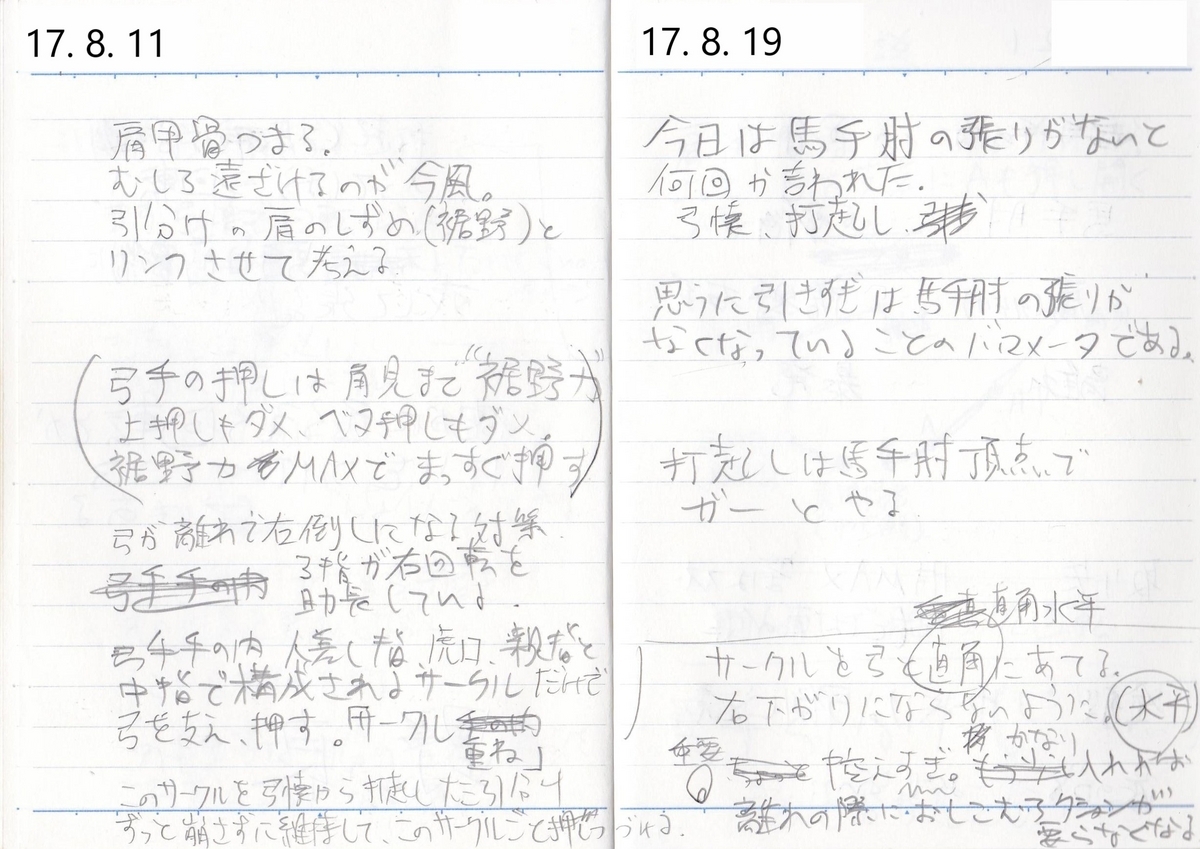 17. 8. 11
肩甲骨つまる。
むしろ遠ざけるのが今風。
引分けの肩のしずめ(裾野)と
リンクさせて考える
弓手の押しは角見まで“裾野力”
上押しもダメ、ベタ押しもダメ。
裾野力MAXでまっすぐ押す
弓が離れで右倒しになる対策
弓手手の内 3指が右回転を
助長している.
弓手手の内 人差し指、虎口、親指と
中指で構成されるサークルだけで
弓を支え、押す。「サークル手の内
重ね」
このサークルを弓懐から打起し 大三 引分け
ずっと崩さずに維持して、このサークルごと押しつづける.
17. 8. 19
今日は馬手肘の張りがないと
何回か言われた.
弓懐、打起し.
思うに引きすぎは馬手肘の張りが
なくなっていることのバロメータである。
打起しは馬手肘頂点で
ガーとやる
直角水平
サークルを弓と直角にあてる.
右下がりにならないように.(水平)
重要 控えすぎ。かなり入れれば
離れの際におしこむアクションが
要らなくなる